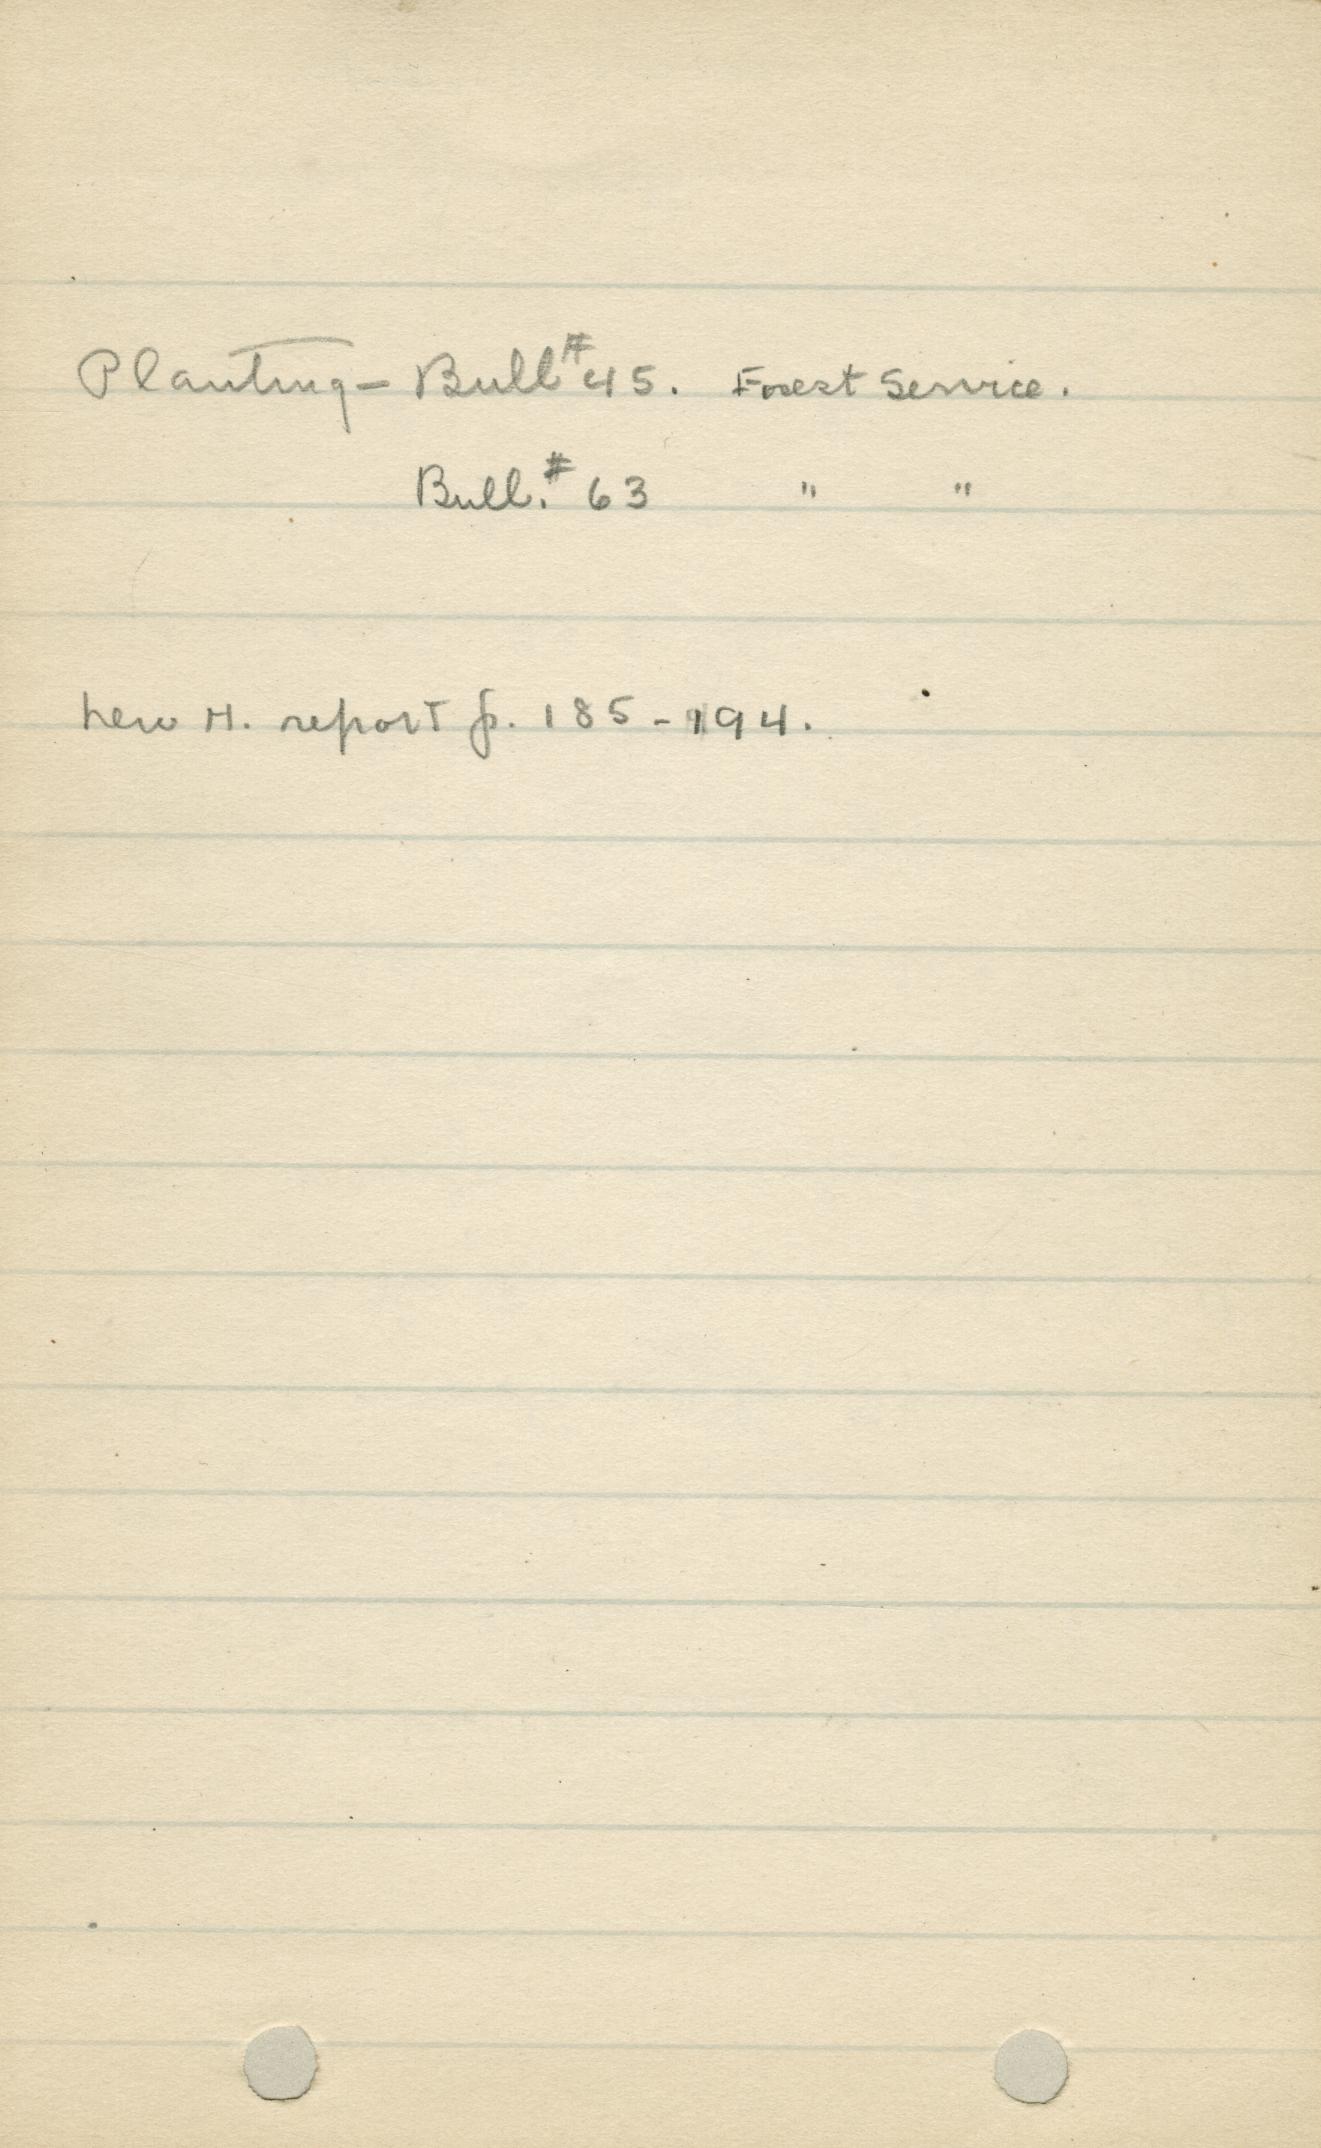 Planting - Bull # 45. Forest Service.
Bull. # 63 " "
New H. report p. 185-194.